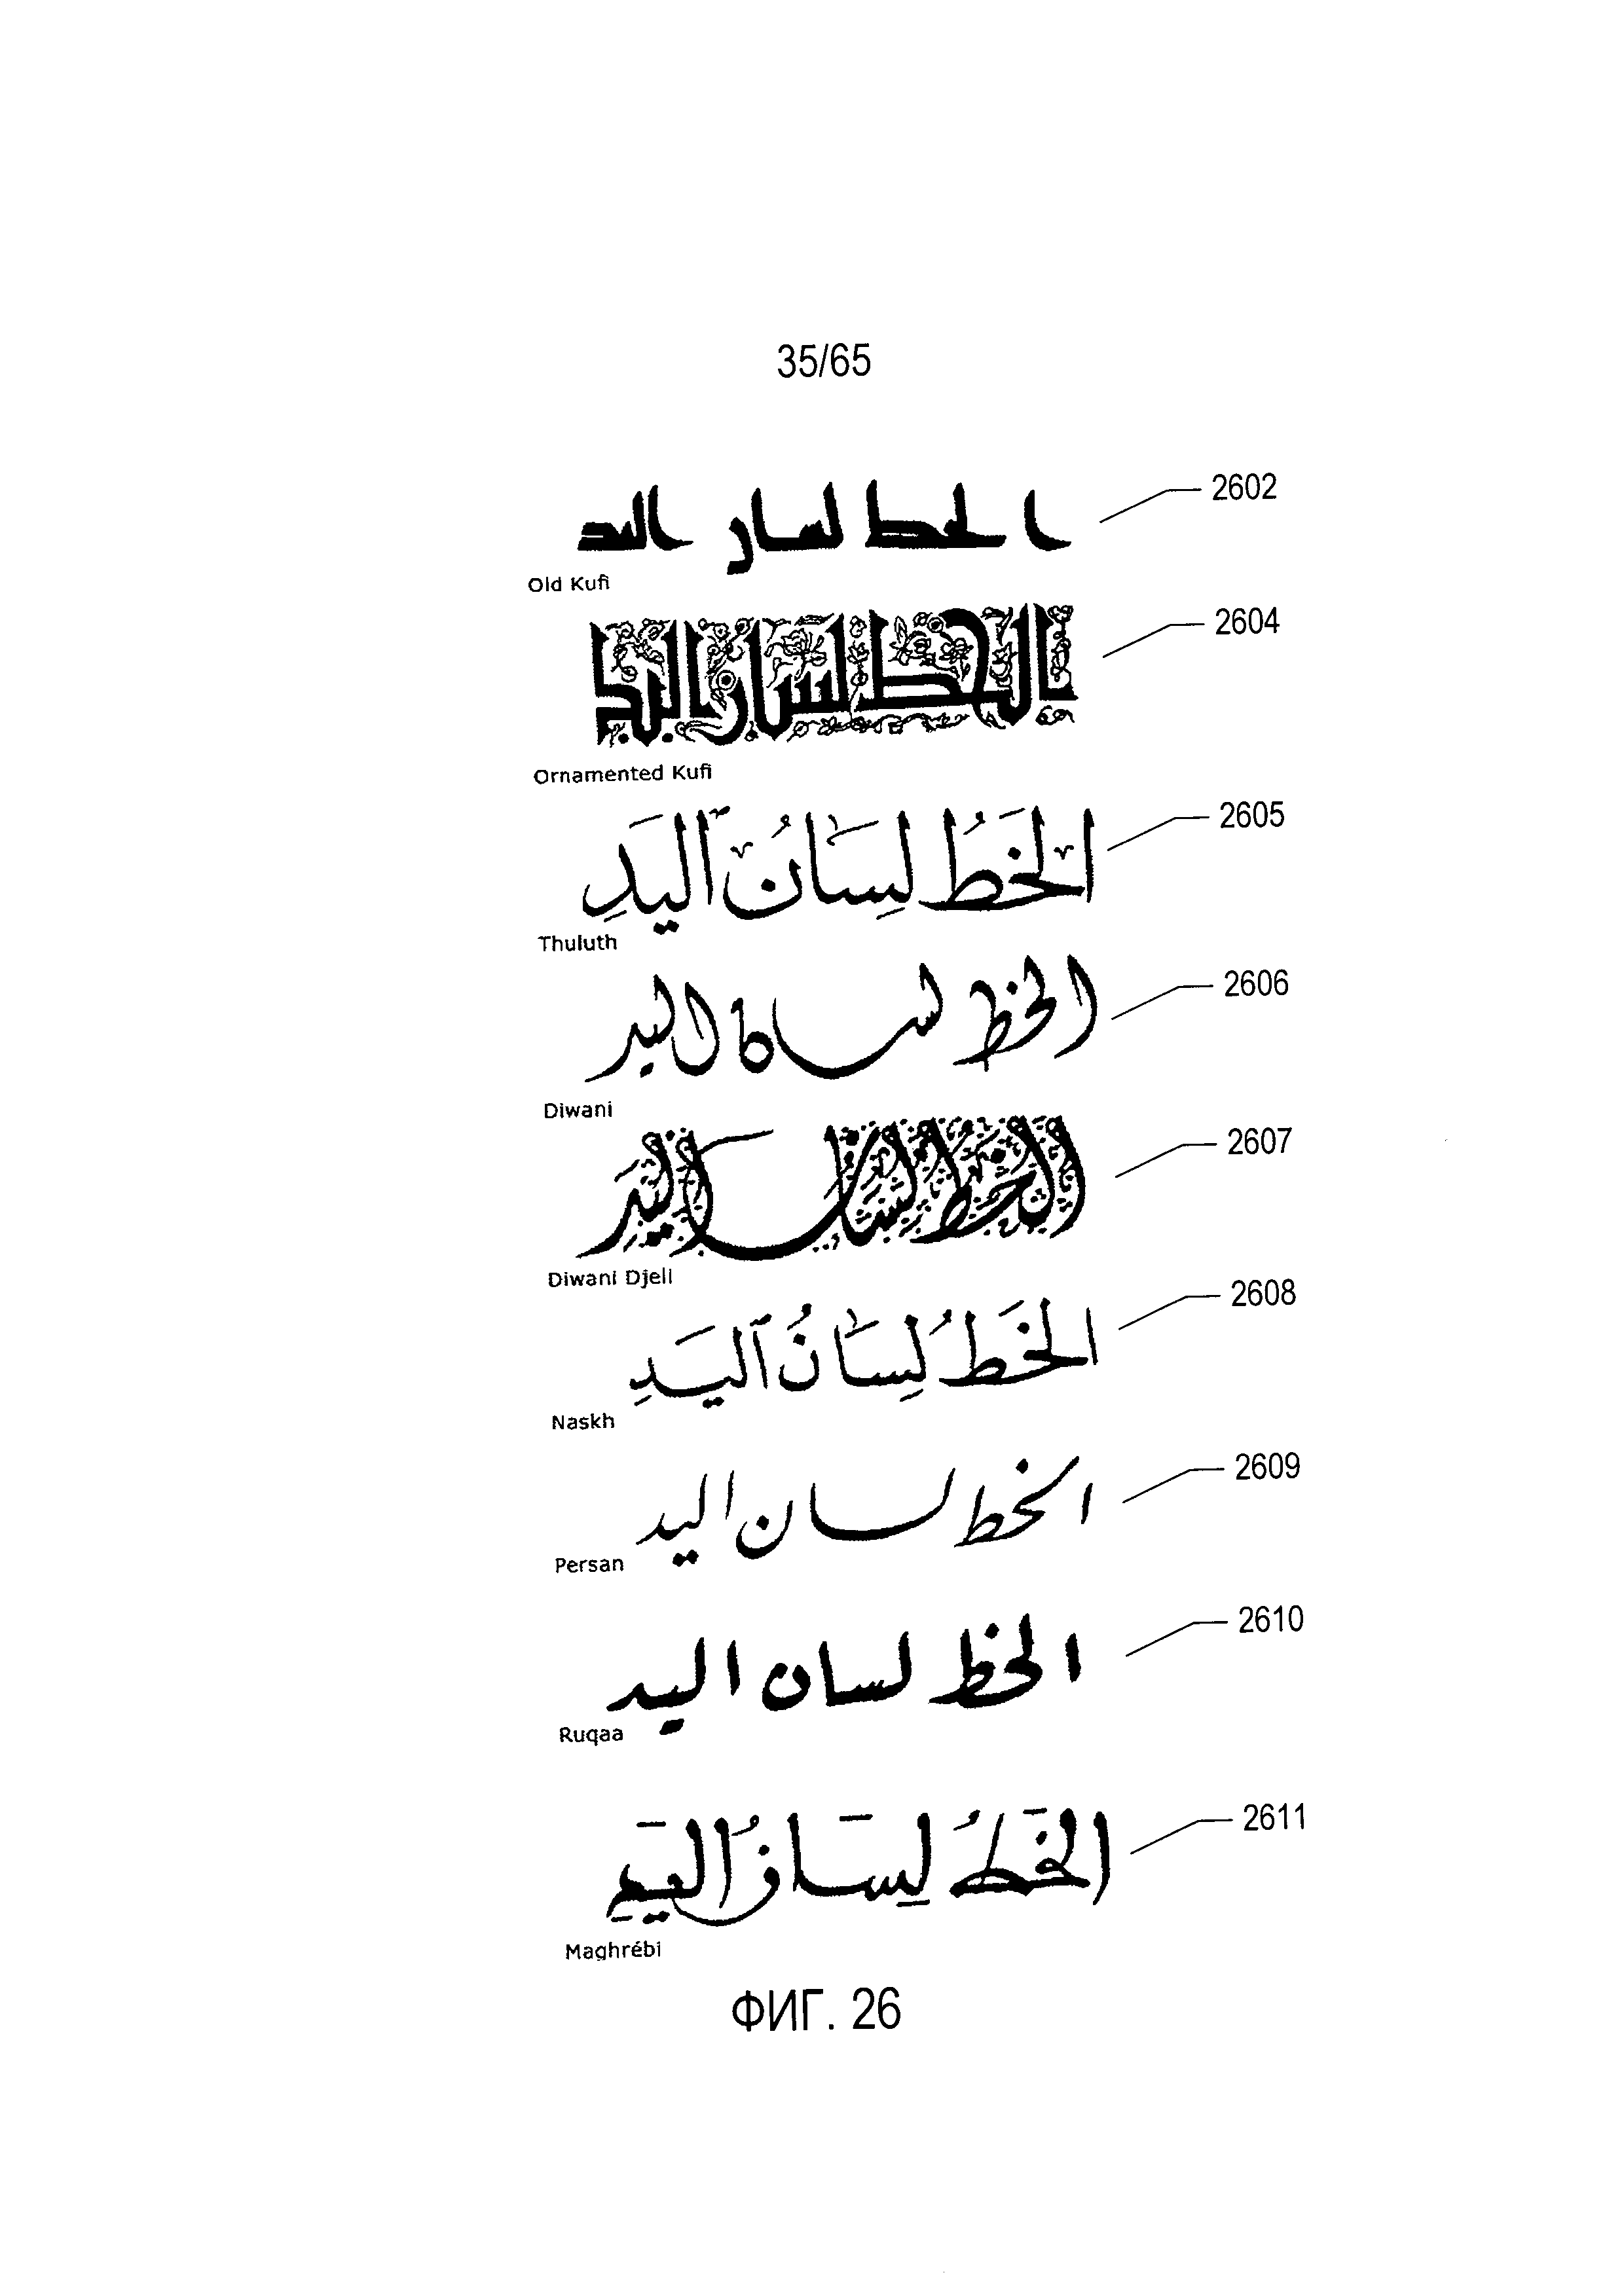 35/65
الخط لسان اليد 2602
Old Kufi
الخط لسان اليد 2604
Ornamented Kufi
الخَطُ لِسَانُ ٱليَدِ 2605
Thuluth
الخط لسان اليد 2606
Diwani
الخط لسان اليد 2607
Diwani Djeli
الخَطُ لِسَانُ ٱليَدِ 2608
Naskh
الخط لسان اليد 2609
Persan
الخط لسان اليد 2610
Ruqaa
الخَطُ لِسَانُ اليَدِ 2611
Maghrébi
ФИГ. 26